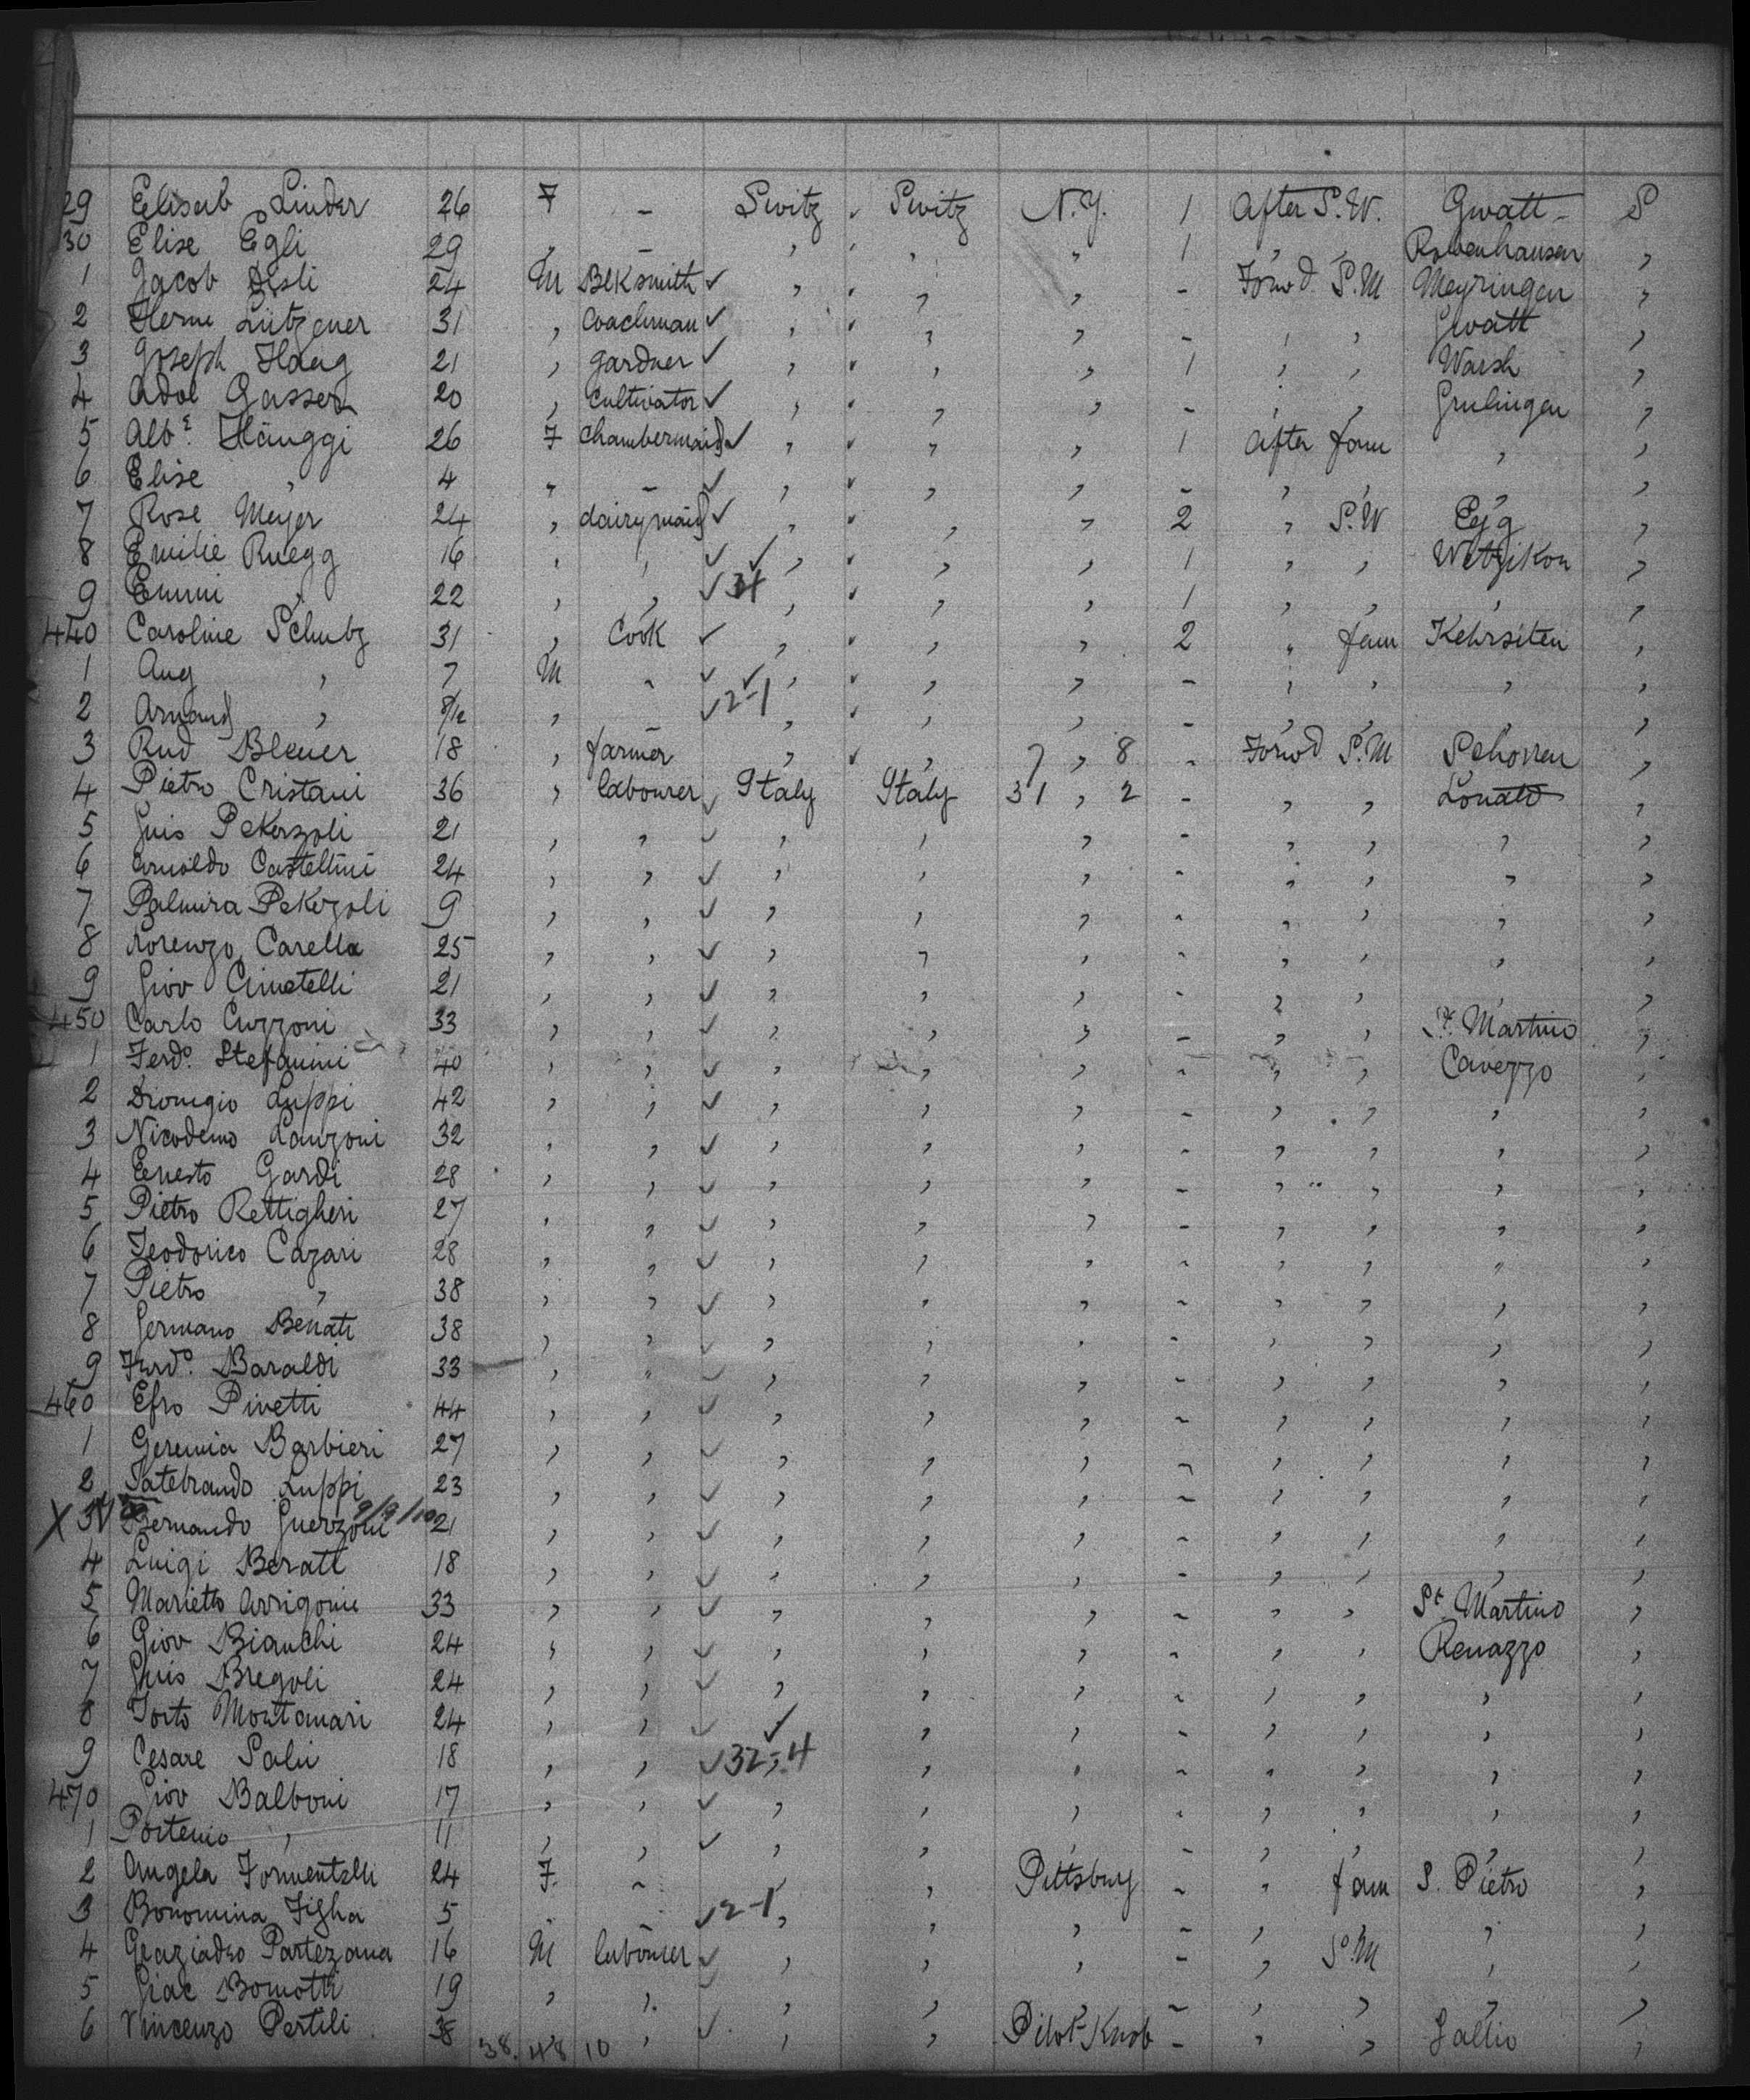 29 Elisab Linder 26 F - Switz Switz N.Y. 1 After S.W. Gwatt - S
30 Elise Egli 29 " - " " " 1 " " Robenhausen "
1 Jacob Disli 24 M Blksmith " " " - Forwd S.M Meyringen "
2 Herm Lützener 31 " Coachman " " " - " " Gwatt "
3 Joseph Haag 21 " gardner " " " 1 " " "
4 Adol Gasser 20 " Cultivator " " " - " " Grulingen "
5 Albe. Hänggi 26 F Chambermaid " " " 1 After fam " "
6 Elise " 4 " - " " " - " " " "
7 Rose Meyer 24 " dairymaid " " " 2 " S.W "
8 Emilie Ruegg 16 " " " " " 1 " " Wetzikon "
9 Emmi " 22 " " 34 " " " 1 " " " "
440 Caroline Schutz 31 " Cook " " " 2 " fam Kehrsiten "
1 Aug " 7 M " " " " - " " " "
2 Armand " 8/12 " - 2-1 " " " - " " " "
3 Rud Bleuer 18 " farmer " " 7 " 8 - Forwd S.M Schorren "
4 Pietro Cristani 36 " labourer Italy Italy 31 " 2 - " " Lonato "
5 Guis Pekerzoli 21 " " " " " - " " " "
6 Arnoldo Castellini 24 " " " " " - " " " "
7 Palmira Pekozoli 9 " " " " " - " " " "
8 Lorenzo Carella 25 " " " " " - " " " "
9 Giov Cimetelli 21 " " " " " - " " " "
450 Carlo Cuzzoni 33 " " " " " - " " St. Martino "
1 Ferdo. Stefanini 40 " " " " " - " " Cavezzo "
2 Dionigio Luppi 42 " " " " " - " " " "
3 Nicodemo Lanzoni 32 " " " " " - " " " "
4 Ernesto Gardi 28 " " " " " - " " " "
5 Pietro Rettigheri 27 " " " " " - " " " "
6 Teodorico Cazari 28 " " " " " - " " " "
7 Pietro " 38 " " " " " - " " " "
8 Germano Benati 38 " " " " " - " " " "
9 Ferdo. Baraldi 33 " " " " " - " " " "
460 Efro Pivetti 44 " " " " " - " " " "
1 Geremia Barbieri 27 " " " " " - " " " "
2 Tatebrando Luppi 23 " " " " " - " " " "
X 3 Bernando Guerzoni 9/9/10 21 " " " " " " " " "
4 Luigi Beratt 18 " " " " " - " " " "
5 Marietto Arrigonie 33 " " " " " - " " St. Martino "
6 Giov Bianchi 24 " " " " " - " " Renazzo "
7 Guis Bregoli 24 " " " " " - " " " "
8 Torto Montanari 24 " " " " " - " " " "
9 Cesare Salvi 18 " " 32-4 " " " - " " " "
470 Giov Balboni 17 " " " " " - " " " "
1 Postenio " 11 " " " " " - " " " "
2 Angela Formentelli 24 F. - " " Pittsburg - " fam S. Pietro "
3 Bonomina Figha 5 " 2-1 " " " - " " " "
4 Graziadeo Partezana 16 M labourer " " " - " S.M " "
5 Giac Bomotti 19 " " " " " - " " " "
6 Vincenzo Pertili 38 " " " Pilot Knob - " " Gallio "
38. 48 10